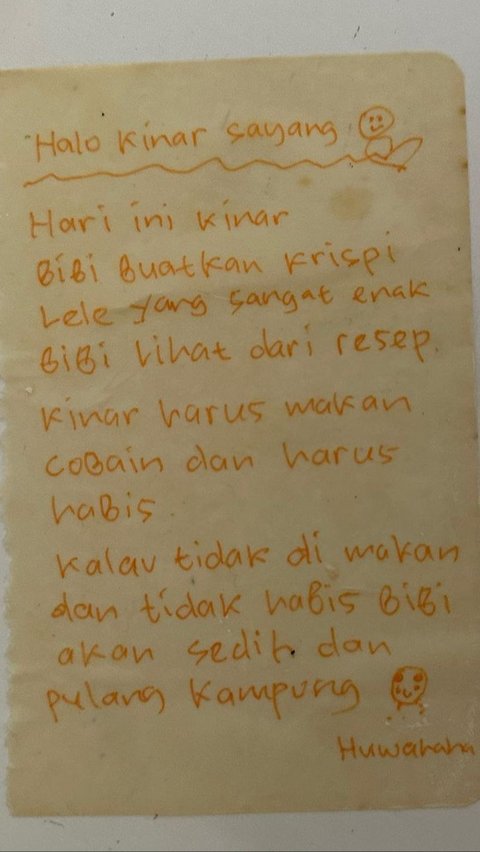 Halo Kinar sayang
Hari ini Kinar
BiBi Buatkan Krispi
Lele yang sangat enak
BiBi Lihat dari resep.
Kinar harus makan
coBain dan harus
haBis
Kalau tidak di makan
dan tidak haBis BiBi
akan sedih dan
pulang Kampung
Huwahaha